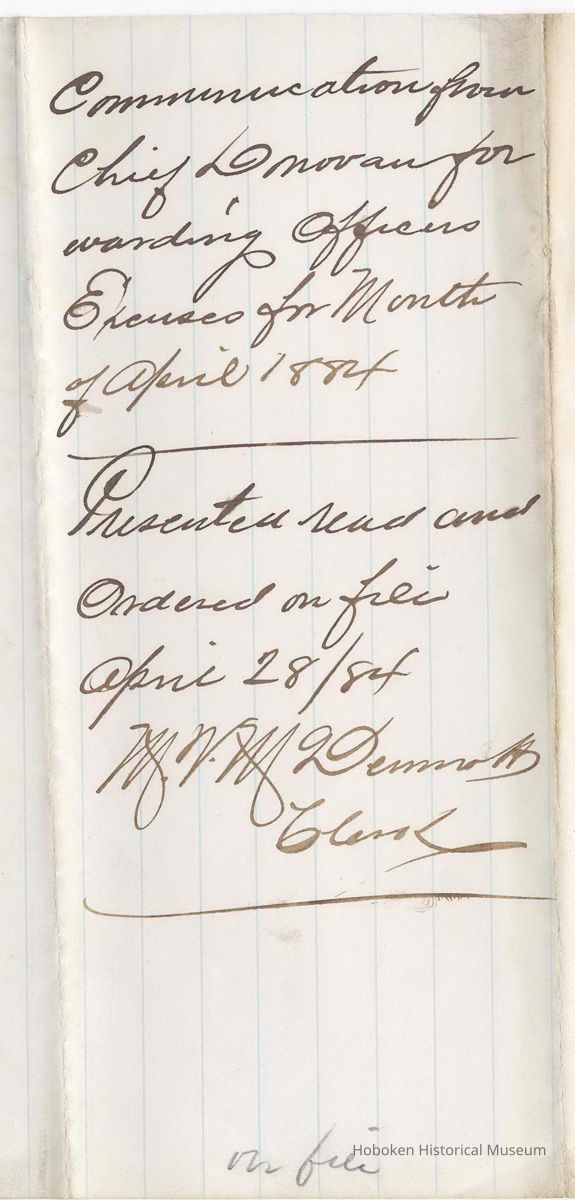 Communication from
Chief Donovan for
warding Officers
Excuses for Month
of April 1884
Presented read and
Ordered on file
April 28/84
M. V. McDermott
Clerk
on file
Hoboken Historical Museum